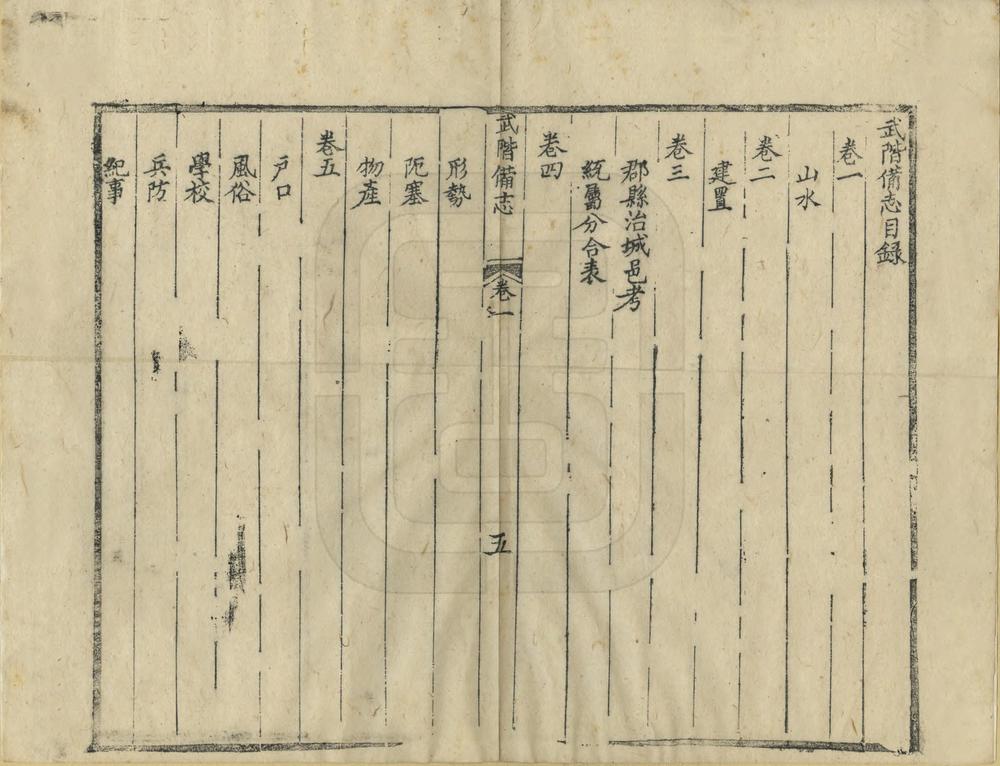 武階備志目録
卷一
山水
卷二
建置
卷三
郡縣治城邑考
統屬分合表
卷四
武階備志
卷一
五
形勢
阨塞
物産
卷五
戸口
風俗
學校
兵防
紀事